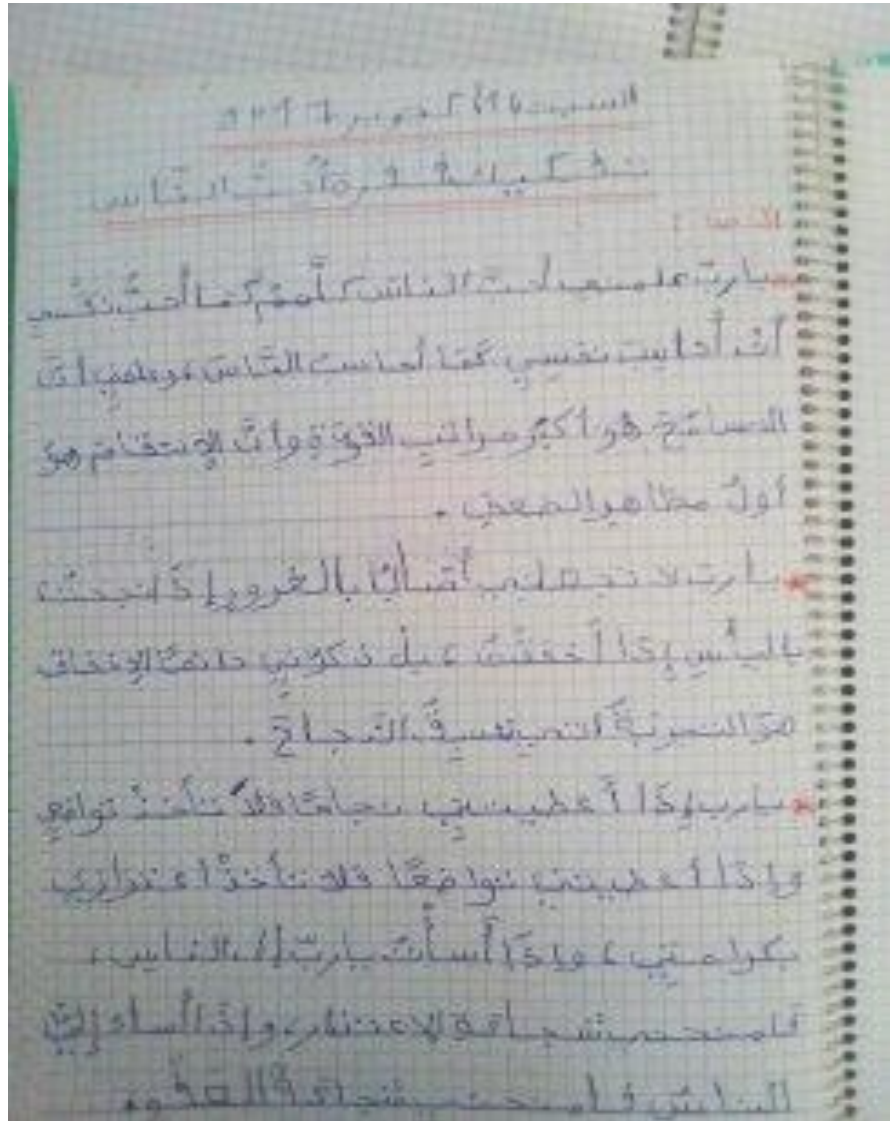 السبت
أحبُّ النَّاس
النص :
يارب علمني أحب الناس كلهم كما أحبُّ نفسي
أن أحاسب نفسي كما أحاسب النَّاس وعلمني أنَّ
التسامح هو أكبر مراتب القوة وأنَّ الإنتقام هو
أولُ مظاهر الضعف .
يارب لا تجعلني أصابُ بالغرور إذا نجحت
باليأسِ إذا أخفقتُ بل ذكرني دائما الإخفاق
هوَ التجربةُ التي تسبقُ النجاحَ .
يارب إذا أعطيتني نجاحًا فلا تأخذْ تواضعي
وإذا أعطيتني تواضعًا فلا تأخذْ اعتزازي
بكرامتي، وإذا أسأتُ ياربّ إلى الناس،
فامنحني شجاعة الاعتذار، وإذا أساء إليَّ
الناسُ فامنحني شجاعةَ العفو.